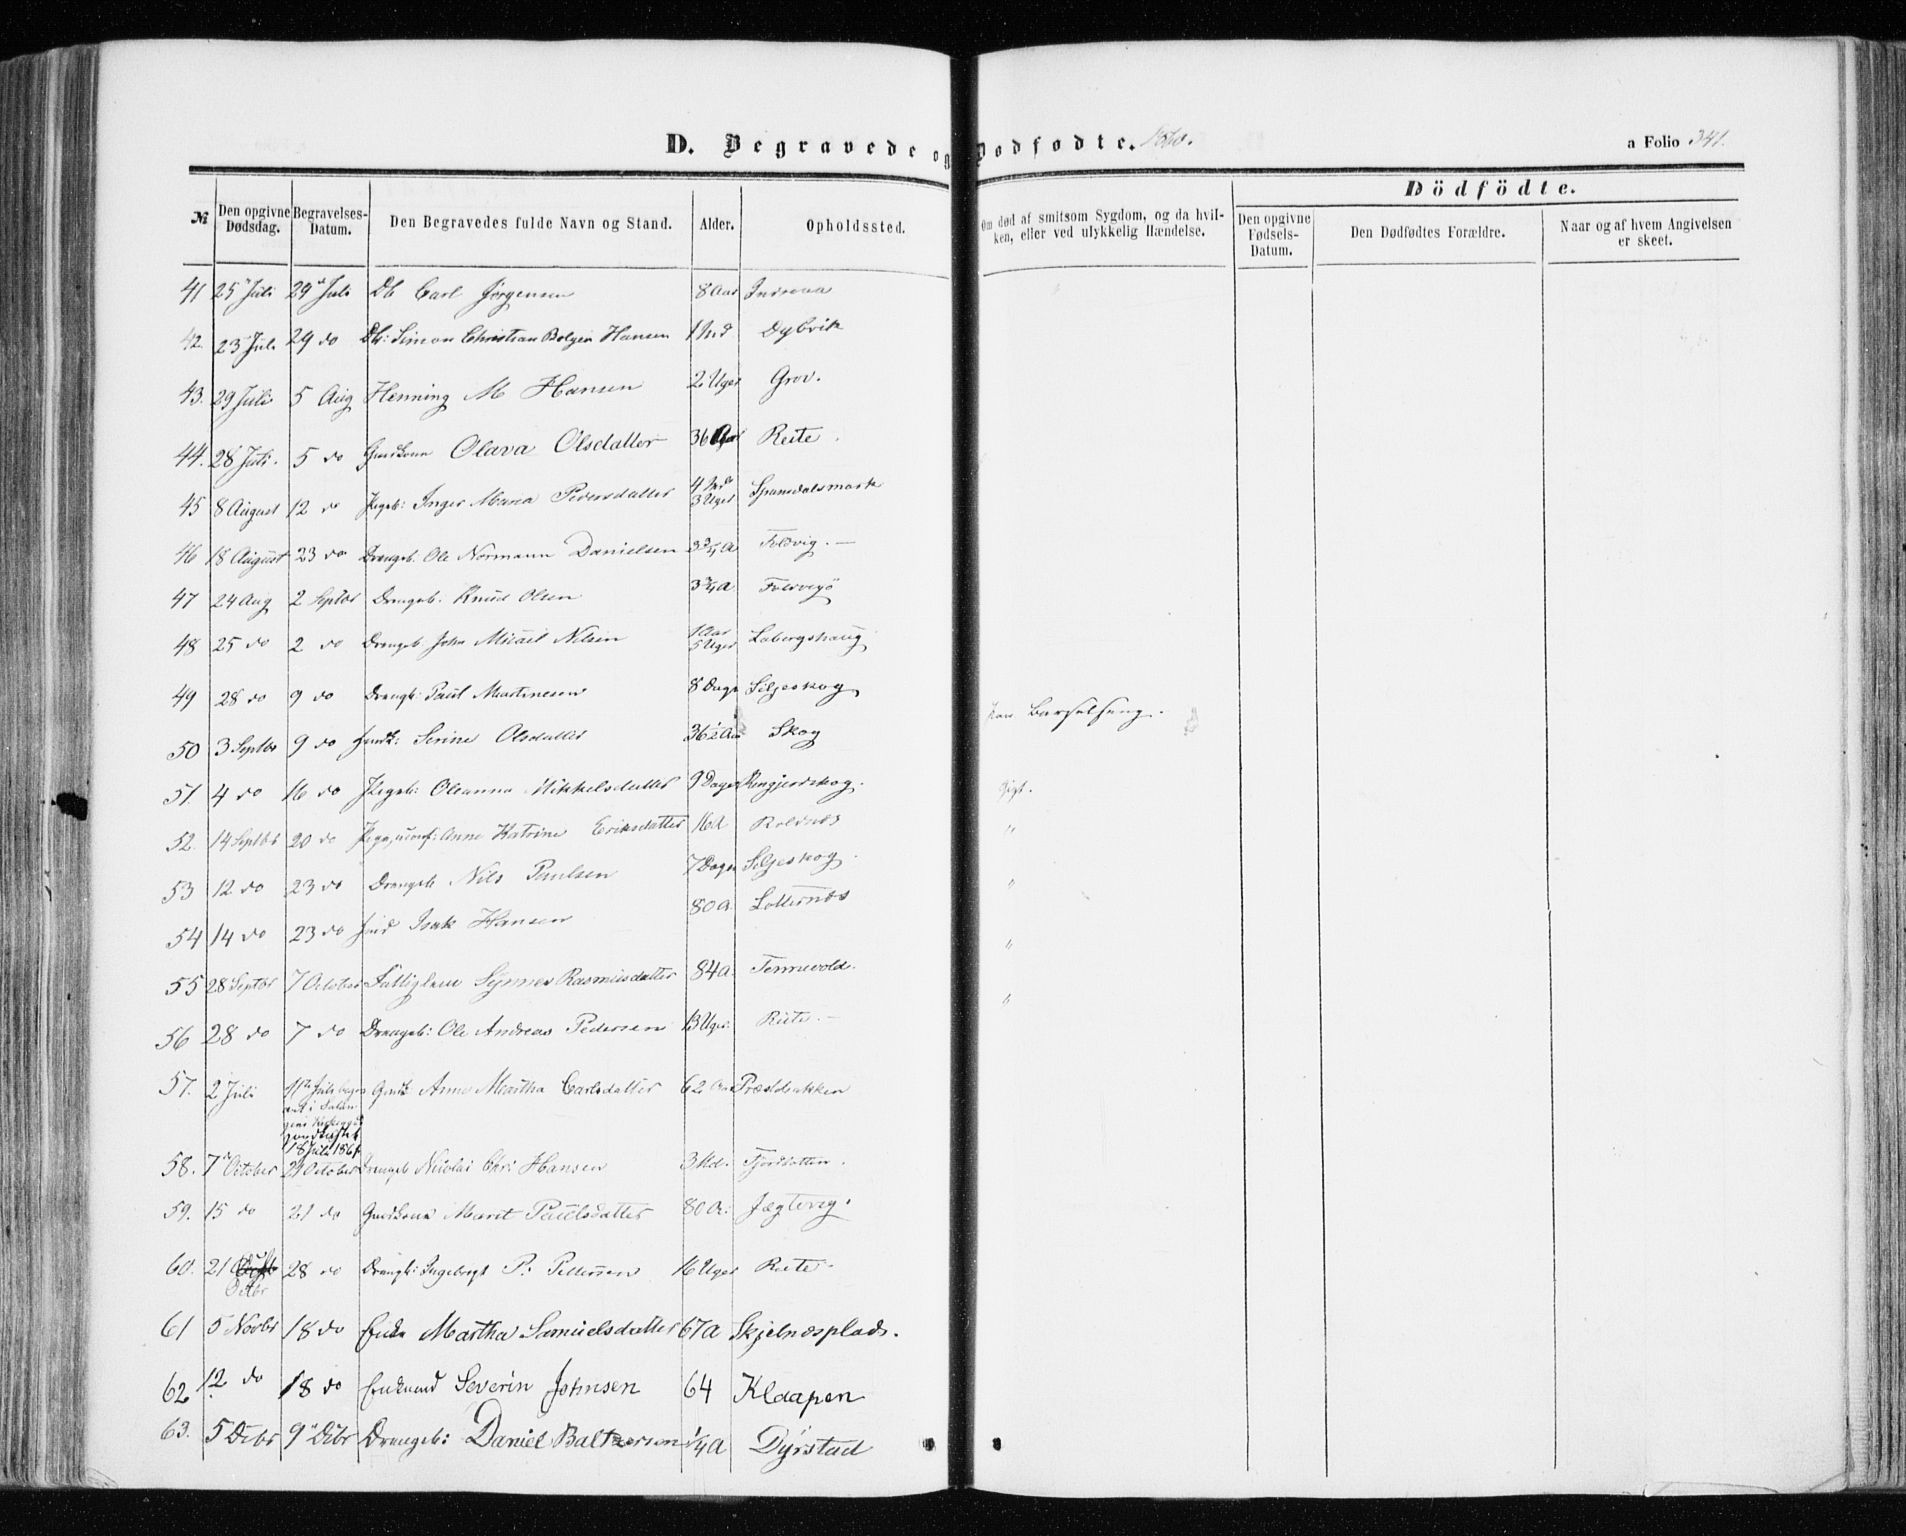 D. Begravede og Dødfødte. 1860.
a Folio 341.
Dödfödte.
№ Den opgivne Dødsdag. Begravelses-Datum. Den Begravedes fulde Navn og Stand. Alder. Opholdssted. Om død af smitsom Sygdom, og da hvilken, eller ved ulykkelig Hændelse. Den opgivne Fødsels-Datum. Den Dødfødtes Forældre. Naar og af hvem Angivelsen er skeet.
41 25 Juli 29 Juli Db Carl Jörgensen 8 Aar
42. 23 Juli 29 do Db: Simon Christian Hansen 1 Md Dybvik
43. 29 Juli 5 Aug Henning M Hansen 2 Uger Grov.
44. 28 Juli. 5 do Gmdkone Olava Olsdatter 36 Aar Reite.
45 8 August 12 do Pigeb: Inger Maria Pedersdatter 4 Md 3 Uger Spansdalsmark
46 18 August 23 do Drengeb. Ole Normann Danielsen 3 3/4 A Foldvig. —
47 24 Aug 2 Septbr Drengeb. Knud Olsen 3 3/4 A Foldvigö
48 25 do 2 do Drengeb John Micael Nilsen 1 Aar 5 Uger Labergshaug
49 28 do 9 do Drengb: Paul Martinesen 8 Dage Siljeskog
50 3 Septbr 9 do Serine Olsdatter 36 1/2 Aar Skog Barselseng.
51 4 do 16 do Pigeb: Oleanna Mikkelsdatter 9 Dage
52. 14 Septbr 20 do Pige, uconf: Anne Katrine Eriksdatter 16 A Roldnæs "
53 12 do 23 do Drengeb Nils Paulsen 7 Dage Siljeskog. "
54 14 do 23 do Isak Hansen 80 A. "
55 28 Septbr 7 October Fattiglem Synnev Rasmusdatter 84 A. Tennevold. "
56 28 do 7 do Drengeb: Ole Andreas Pedersen 13 Uger. Reite. —
57. 2 Juli 11te Juli i Salangens Kirkegaard 18 Juli 1861 Gmdk Anne Martha Carlsdatter 62 Aar Præstbakken
58. 7 October 21 October Drengeb Nicolai Chr: Hansen 3 Md. Fjordbotten.
59. 15 do 21 do Gmdkone Marit Paulsdatter 80 A: Jægtevig.
60. 21 Octbr 28 do Drengb: Ingebrigt P: Pettersen 16 Uger Reite
61 5 Novbr 18 do Enke Martha Samuelsdatter 67 A Skjelnæsplads.
62 12 do 18 do Enkemd Severin Johnsen 64 Klaapen
63. 5 Debr 9 Debr Drengeb: Daniel Baltzersen 1/4 A Dyrstad